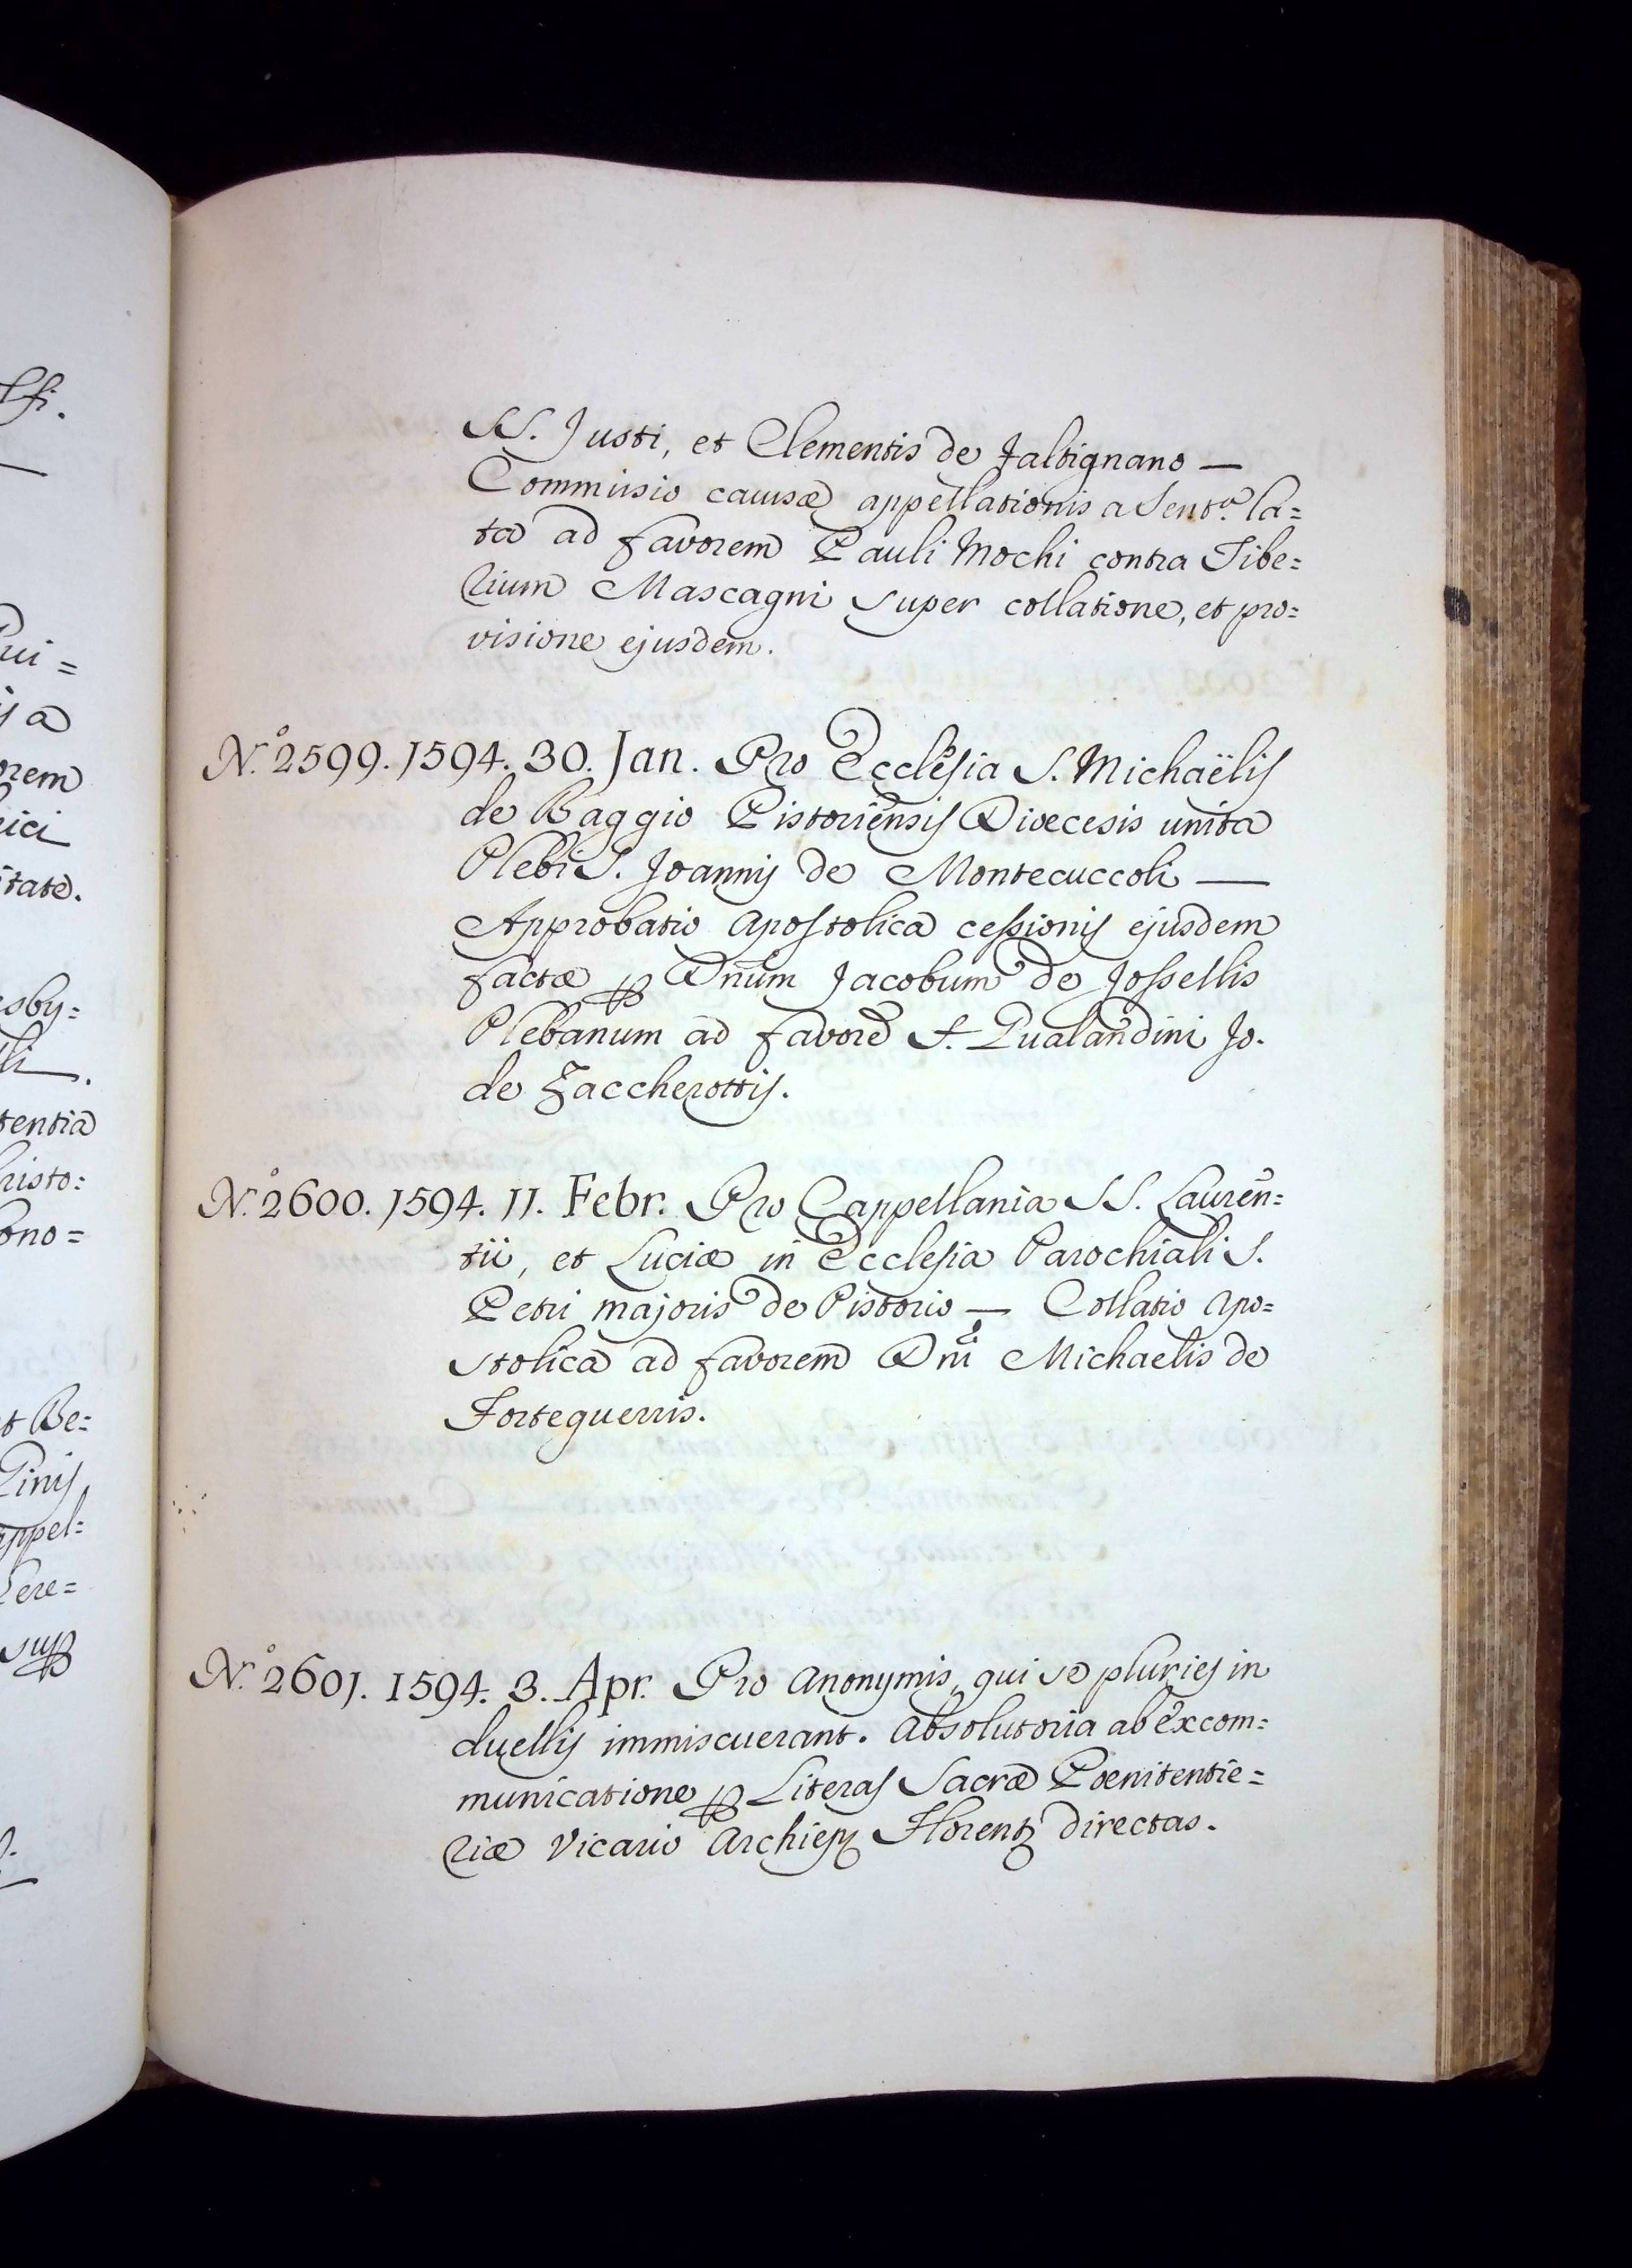 SS. Justi, et Clementis de Faltignano —
Commissio causæ appellationis a Sentª. la=
ta ad favorem Pauli Mochi contra Tibe=
rium Mascagni super collatione, et pro=
visione ejusdem.
N.º 2599. 1594. 30. Jan. Pro Ecclesia S. Michaëlis
de Baggio Pistoriensis Dioecesis unita
Plebi S. Joannis de Montecuccoli —
Approbatio Apostolica cessionis ejusdem
factæ ꝑ Dnum Jacobum de Jossellis
Plebanum ad favorē F. Gualandini Jo.
de Zaccherottis.
N.º 2600. 1594. 11. Febr. Pro Cappellania SS. Lauren=
tii, et Luciæ in Ecclesia Parochiali S.
Petri majoris de Pistorio — Collatio Apo=
stolica ad favorem Dni Michaelis de
Forteguerris.
N.º 2601. 1594. 3. Apr. Pro Anonymis, qui se pluries in
duellis immiscuerant. Absolutoria ab excom=
municatione ꝑ Literas Sacræ Poenitentie=
riæ Vicario Archiepi Florent directas.
ui =
s a
orem
ici
itate.
esby:
li
tentia
risto:
ono =
t Be:
Pinis
appel:
ere=